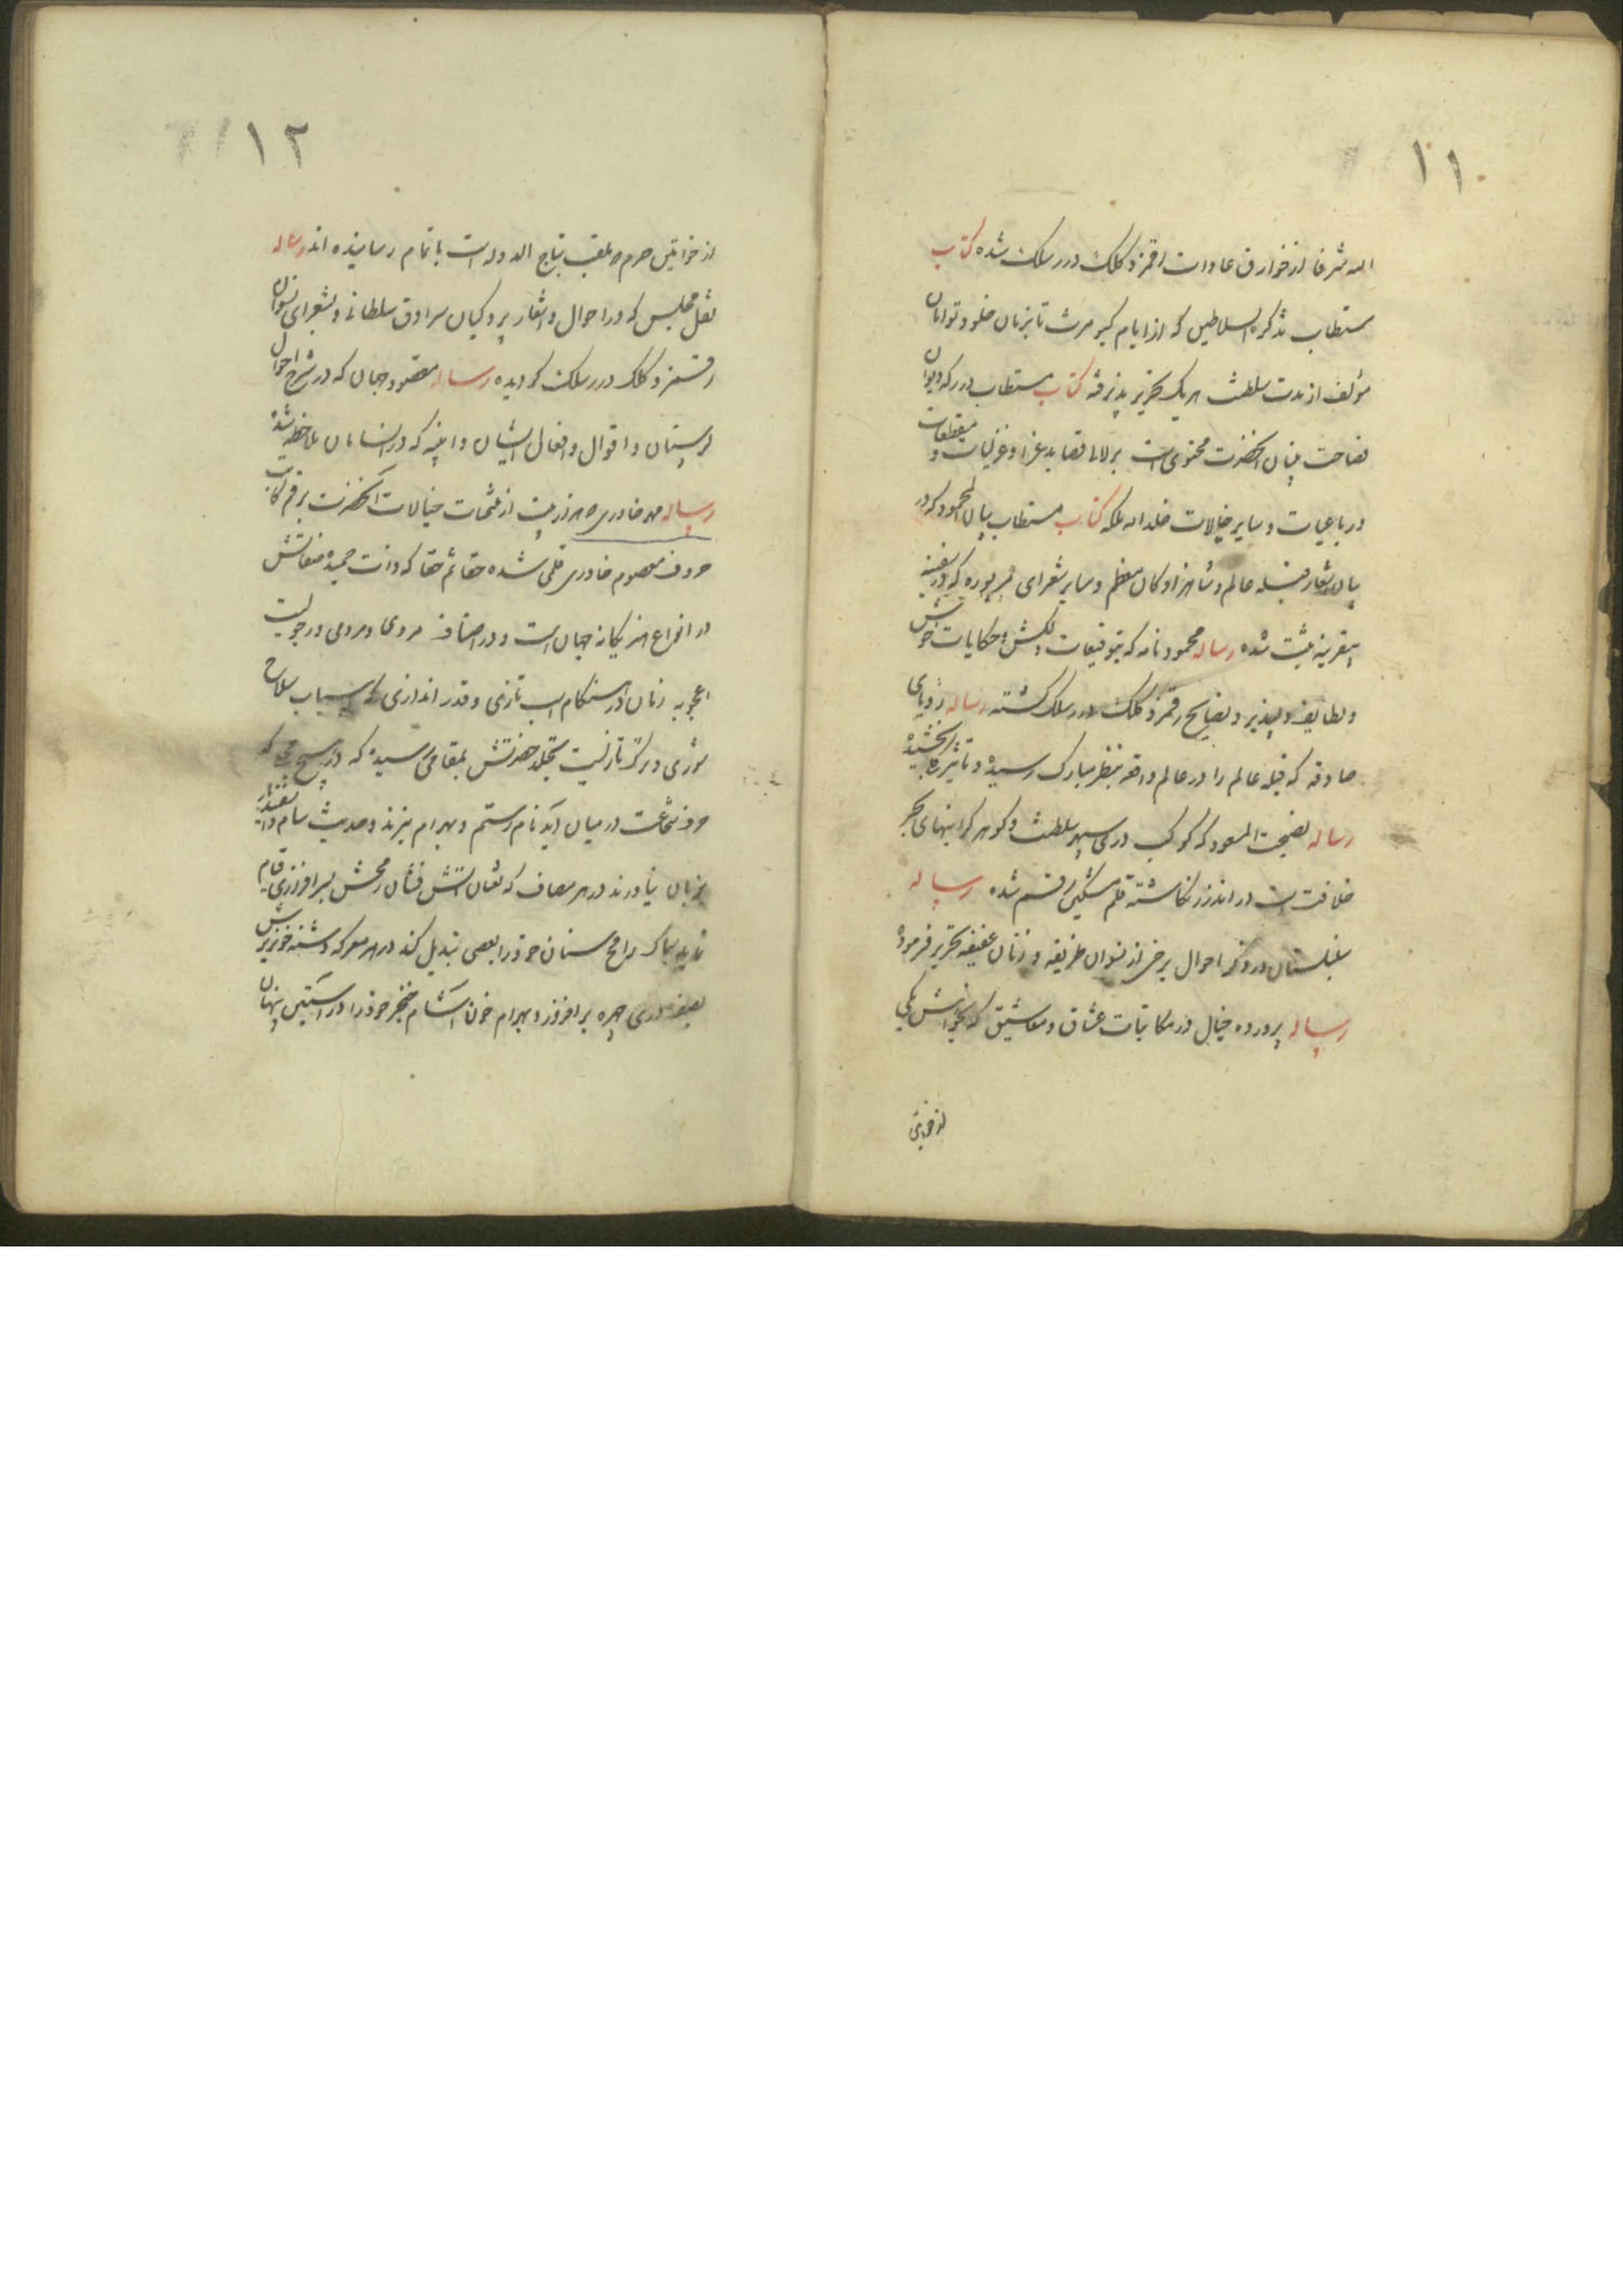 ۱۱
الله شرفا از خوارق عادات رقمزد کلک درر سلک شده کتاب
مستطاب تذکرة السلاطین که از ایام کیومرث تا بزمان خلود توامان
مؤلف از مدت سلطنت هر یک تحریر پذیرفته کتاب مستطاب درر که دیوان
فصاحت بنیان آنحضرت محتوی است بر لالی قصاید غرا و غزلیات و مقطعات
و رباعیات و سایر خیالات خلد الله ملکه کتاب مستطاب بیان المحمود که در
بیان اشعار قبله عالم و شاهزادگان معظم و سایر شعرای مزبوره که در سفینه
بیقرینه ثبت شده رساله محمود نامه که بتوقیعات دلکش و حکایات خوش
و لطایف دلپذیر و نصایح رقمزد کلک درر سلک گشته رساله رؤیای
صادقه که قبله عالم را در عالم واقعه بنظر مبارک رسیده و تاثیرها بخشیده
رساله نصیحت المسعود که کوکب دری سپهر سلطنت و گوهر گرانبهای بحر
خلافت است در اندرز نگاشته قلم مشکین رقم شده رساله
سنبلستان در ذکر احوال برخی از نسوان ظریفه و زنان عفیفه تحریر فرموده
رساله پرورده خیال در مکاتبات عشاق و معاشیق که بخواهش یکی
از خواتین
۱۲
از خواتین حرم و ملقب بتاج الدوله است باتمام رسانیده اند رساله
نقل مجلس که در احوال و اشعار پردگیان سرادق سلطانی و شعرای نسوان
رقمزد کلک درر سلک گردیده رساله مقصود جهان که در شرح احوال
لرستان و اقوال و افعال ایشان و ابنیه که در آن سامان ملاحظه شده
رساله مهر خاوری هزار بیت از رشحات خیالات آنحضرت بر قم کاتب
حروف معصوم خاوری قلمی شده حقا ثم حقا که ذات حمیده صفاتش
در انواع هنر یگانه جهان است و در اصناف مردی و مردمی و رجولیت
اعجوبه زمان در هنگام اسب تازی و قدر اندازی که اسباب سلاح
شوری و ترکتازیست تجلد حضرتش بمقامی رسیده که در هیچ محلی که
حرف شجاعت در میان آید نام رستم و بهرام نبرند و حدیث سام و اسفندیار
بزبان نیاورند در هر مصاف که ثعبان آتش فشان رمحش سر افرازی
نماید سماک رامح سنان خود را بعصی تبدیل کند در هر معرکه دشنه خونریزش
چهره بر افروزد بهرام خون آشام خنجر خود را در آستین پنهان